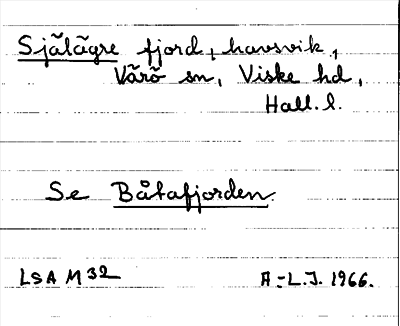 Själägre fjord, havsvik,
Värö sn, Viske hd,
Hall. l.
Se Båtafjorden.
LSA M 32
A-L.J. 1966.